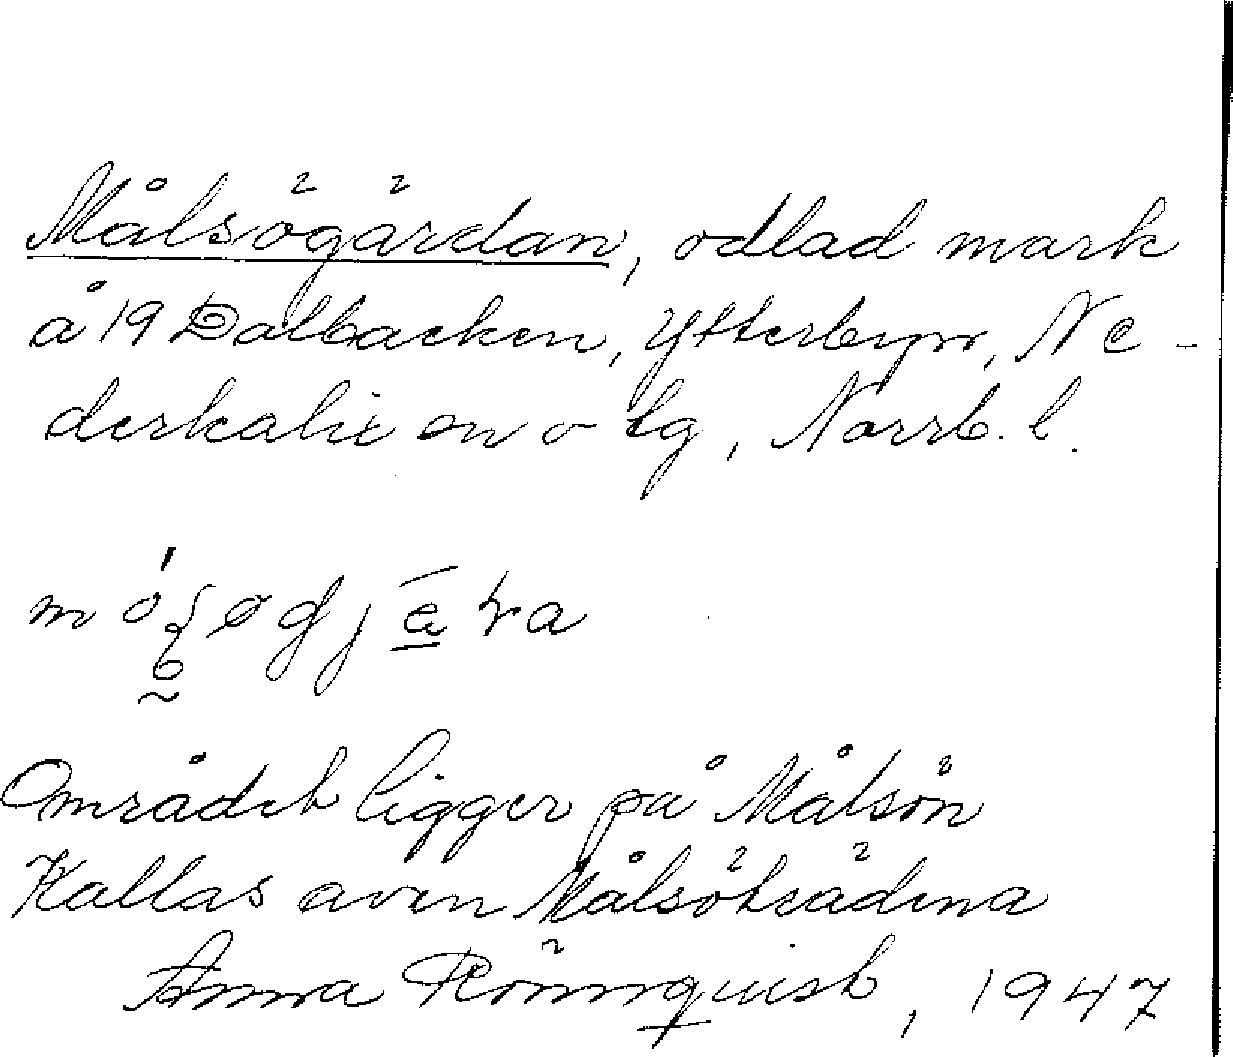 Målsögärdan, odlad mark
å 19 Dalbacken, Ytterbyn, Ne-
derkalix en o lg, Norrb. l.
Området ligger på Målsön
Kallas även Målsöträdena
Anna Rönnquist, 1947